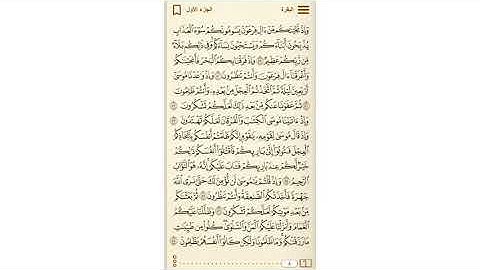 البقرة
الجزء الأول
وَإِذْ نَجَّيْنَٰكُم مِّنْ ءَالِ فِرْعَوْنَ يَسُومُونَكُمْ سُوٓءَ ٱلْعَذَابِ
يُذَبِّحُونَ أَبْنَآءَكُمْ وَيَسْتَحْيُونَ نِسَآءَكُمْ وَفِى ذَٰلِكُم بَلَآءٌ
مِّن رَّبِّكُمْ عَظِيمٌ ٤٩ وَإِذْ فَرَقْنَا بِكُمُ ٱلْبَحْرَ فَأَنجَيْنَٰكُمْ
وَأَغْرَقْنَآ ءَالَ فِرْعَوْنَ وَأَنتُمْ تَنظُرُونَ ٥٠ وَإِذْ وَٰعَدْنَا مُوسَىٰٓ
أَرْبَعِينَ لَيْلَةً ثُمَّ ٱتَّخَذْتُمُ ٱلْعِجْلَ مِنۢ بَعْدِهِۦ وَأَنتُمْ ظَٰلِمُونَ
٥١ ثُمَّ عَفَوْنَا عَنكُم مِّنۢ بَعْدِ ذَٰلِكَ لَعَلَّكُمْ تَشْكُرُونَ ٥٢
وَإِذْ ءَاتَيْنَا مُوسَى ٱلْكِتَٰبَ وَٱلْفُرْقَانَ لَعَلَّكُمْ تَهْتَدُونَ ٥٣
وَإِذْ قَالَ مُوسَىٰ لِقَوْمِهِۦ يَٰقَوْمِ إِنَّكُمْ ظَلَمْتُمْ أَنفُسَكُم بِٱتِّخَاذِكُمُ
ٱلْعِجْلَ فَتُوبُوٓا۟ إِلَىٰ بَارِئِكُمْ فَٱقْتُلُوٓا۟ أَنفُسَكُمْ ذَٰلِكُمْ
خَيْرٌ لَّكُمْ عِندَ بَارِئِكُمْ فَتَابَ عَلَيْكُمْ إِنَّهُۥ هُوَ ٱلتَّوَّابُ
ٱلرَّحِيمُ ٥٤ وَإِذْ قُلْتُمْ يَٰمُوسَىٰ لَن نُّؤْمِنَ لَكَ حَتَّىٰ نَرَى ٱللَّهَ
جَهْرَةً فَأَخَذَتْكُمُ ٱلصَّٰعِقَةُ وَأَنتُمْ تَنظُرُونَ ٥٥ ثُمَّ بَعَثْنَٰكُم
مِّنۢ بَعْدِ مَوْتِكُمْ لَعَلَّكُمْ تَشْكُرُونَ ٥٦ وَظَلَّلْنَا عَلَيْكُمُ
ٱلْغَمَامَ وَأَنزَلْنَا عَلَيْكُمُ ٱلْمَنَّ وَٱلسَّلْوَىٰ كُلُوا۟ مِن طَيِّبَٰتِ
مَا رَزَقْنَٰكُمْ وَمَا ظَلَمُونَا وَلَٰكِن كَانُوٓا۟ أَنفُسَهُمْ يَظْلِمُونَ ٥٧
٨